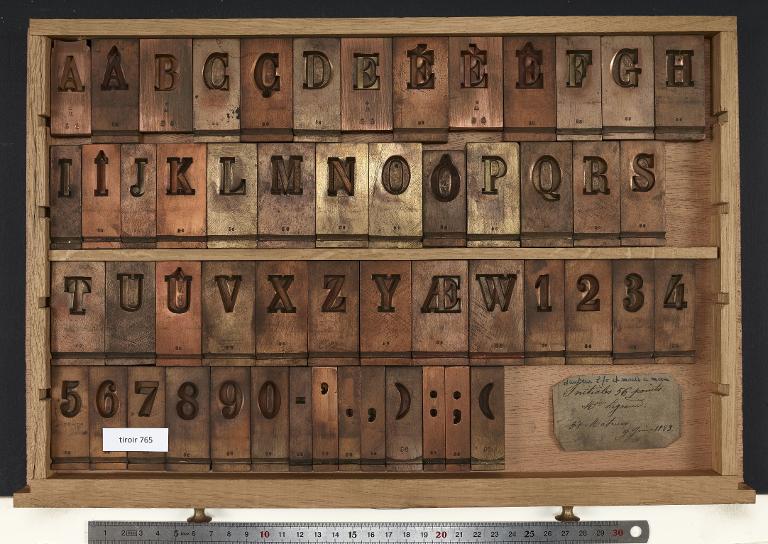 A Â B C Ç D E É È Ê F G H
I Î J K L M N O Ô P Q R S
T U Û V X Z Y Æ W 1 2 3 4
5 6 7 8 9 0 - ' . , ) : ; (
tiroir 765
Initiales 56 points
1 2 3 4 5 6 7 8 9 10 11 12 13 14 15 16 17 18 19 20 21 22 23 24 25 26 27 28 29 30